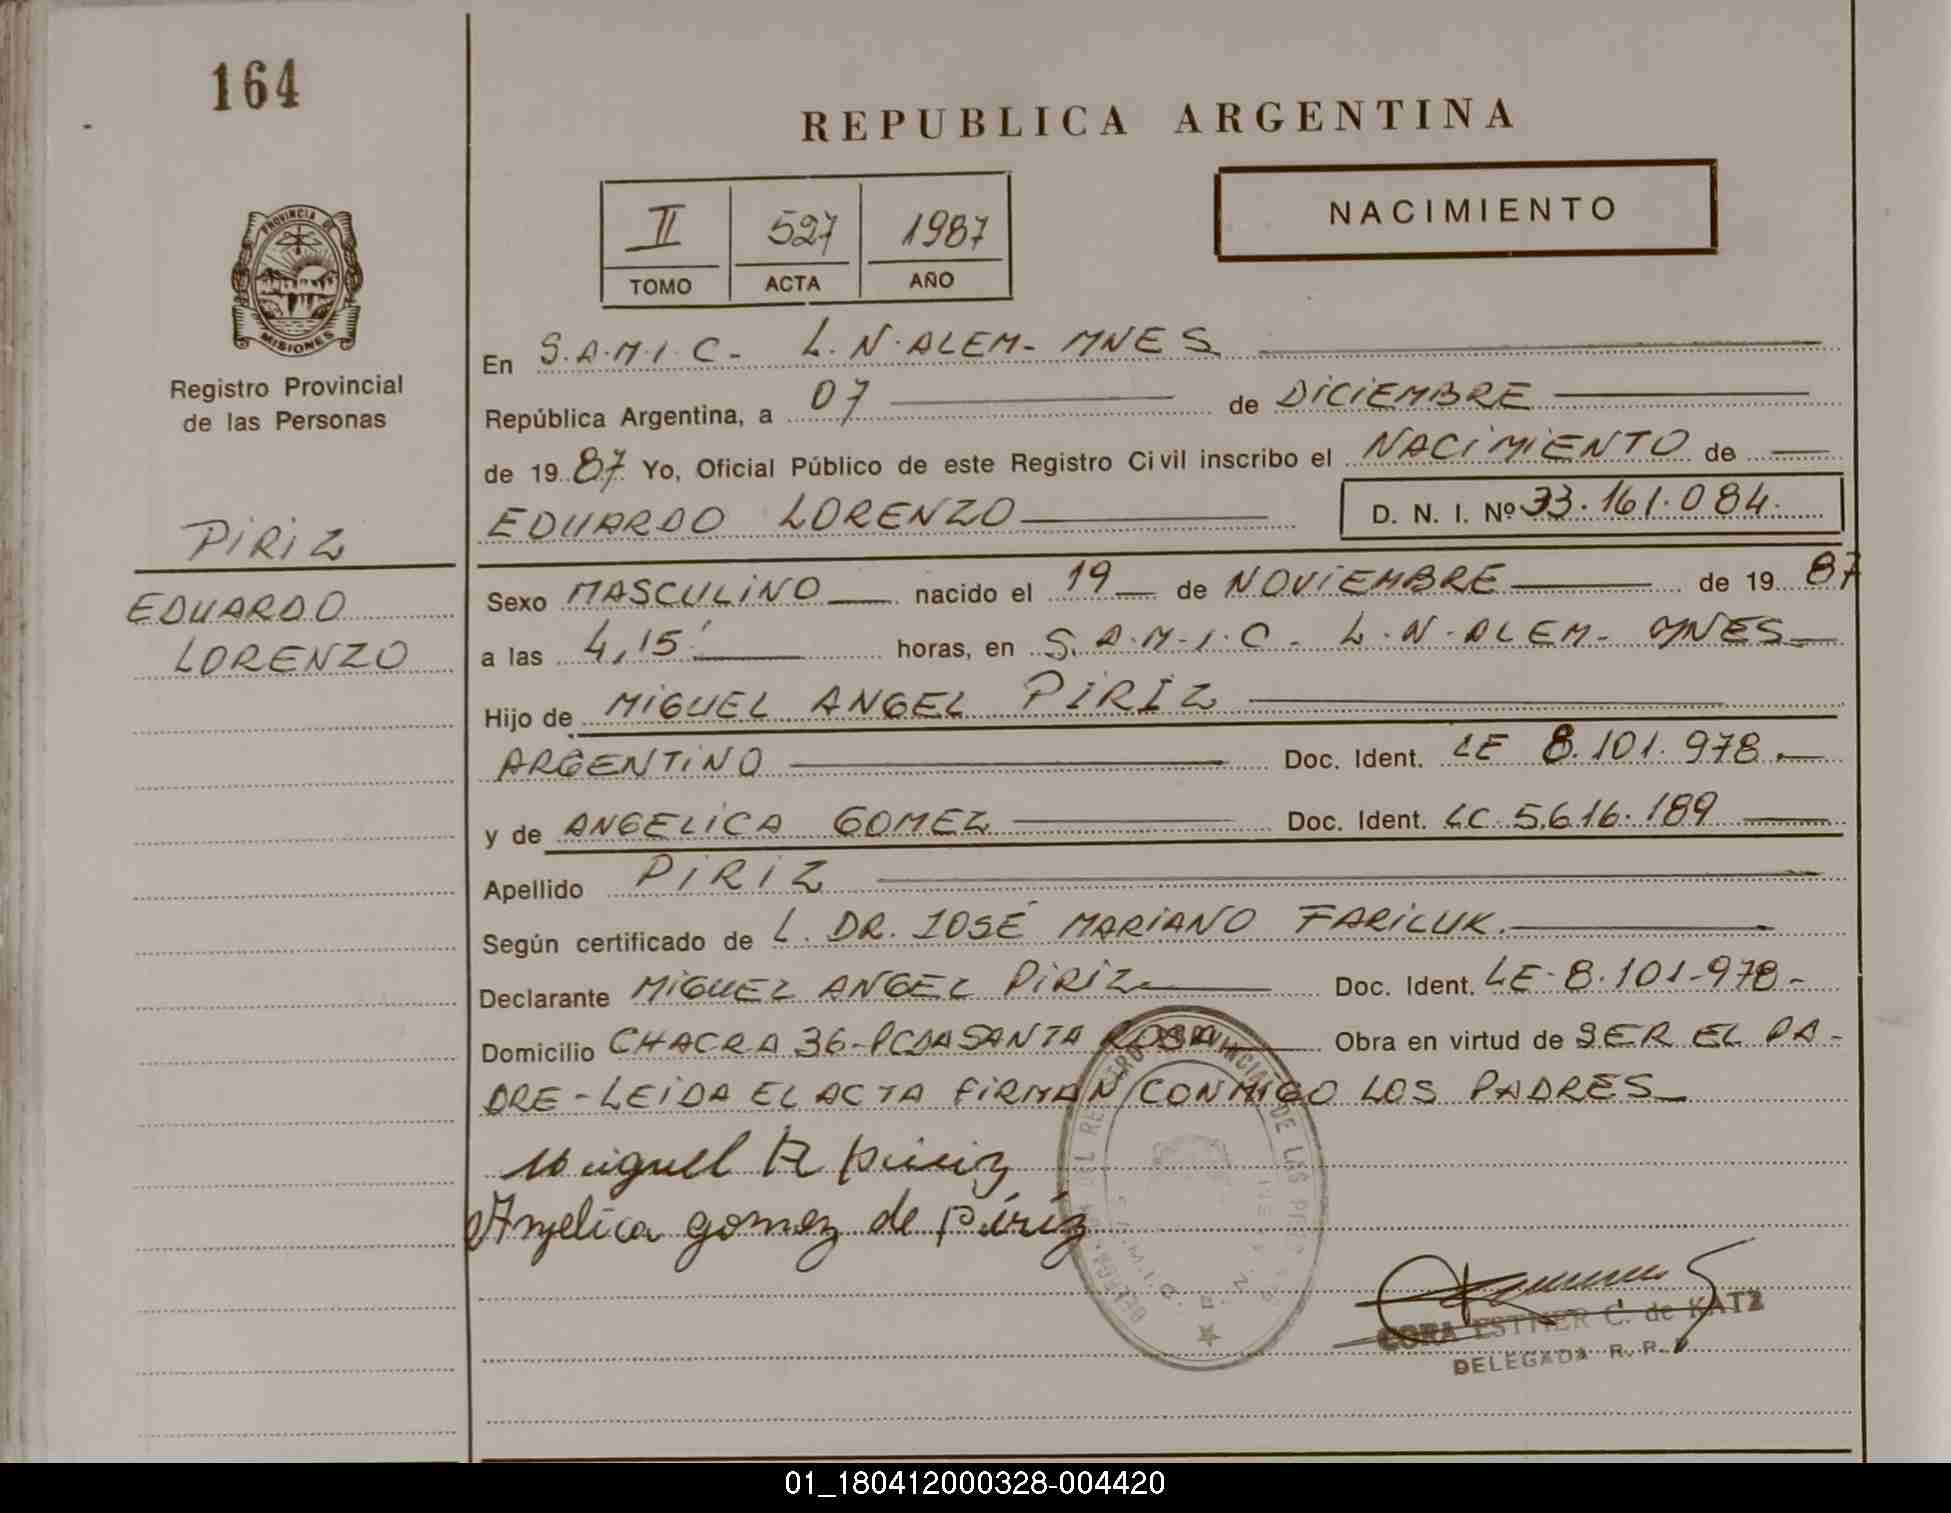 164
REPUBLICA ARGENTINA
II 527 1987
TOMO ACTA AÑO
NACIMIENTO
PROVINCIA DE
MISIONES
Registro Provincial
de las Personas
PIRIZ
EDUARDO
LORENZO
En S.A.M.I.C- L.N.ALEM- MNES
República Argentina, a 07 de DICIEMBRE
de 19 87 Yo, Oficial Público de este Registro Civil inscribo el NACIMIENTO de
EDUARDO LORENZO D. N. I. Nº 33.161.084.
Sexo MASCULINO nacido el 19 de NOVIEMBRE de 19 87
a las 4,15' horas, en S.A.M.I.C- L.N.ALEM- MNES
Hijo de MIGUEL ANGEL PIRIZ
ARGENTINO Doc. Ident. LE 8.101.978.
y de ANGELICA GOMEZ Doc. Ident. LC 5.616.189
Apellido PIRIZ
Según certificado de L. DR. JOSÉ MARIANO FARILUK.
Declarante MIGUEL ANGEL PIRIZ Doc. Ident. LE-8.101-978-
Domicilio CHACRA 36-PCDA SANTA ROSA Obra en virtud de SER EL PA-
DRE-LEIDA EL ACTA FIRMAN CONMIGO LOS PADRES
Miguel A piriz
Anjelica gomez de píríz
CORA ESTHER C. de KATZ
DELEGADA R. R. P.
01_180412000328-004420